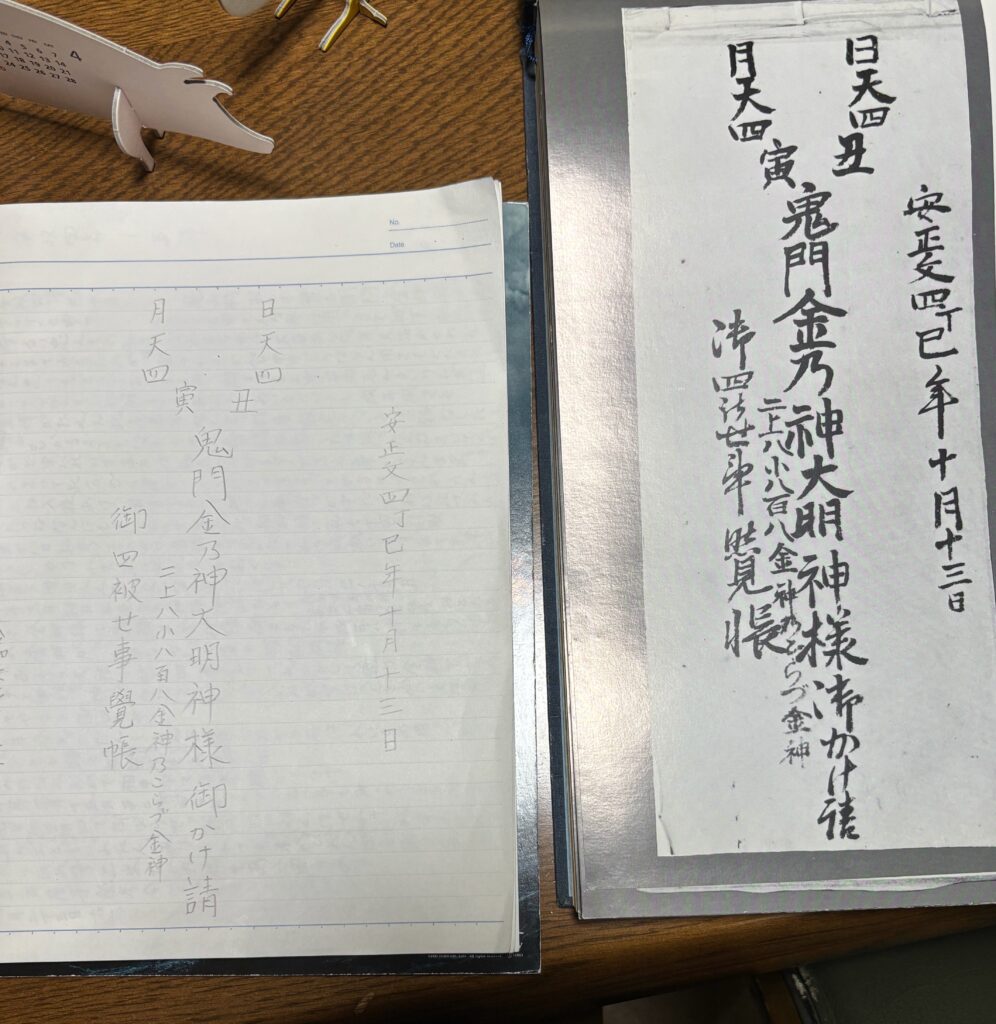 安正文四丁巳年十月十三日
日天四
丑
月天四
寅
鬼門金乃神大明神様御かけ請
二上八小八百八金神乃こらづ金神
御四被世事覺帳
No.
Date
安正文四丁巳年十月十三日
日天四
丑
月天四
寅
鬼門金乃神大明神様御かけ請
二上八小八百八金神乃こらづ金神
御四被せ事覺帳
4
4 5 6 7
11 12 13 14
17 18 19 20 21
24 25 26 27 28